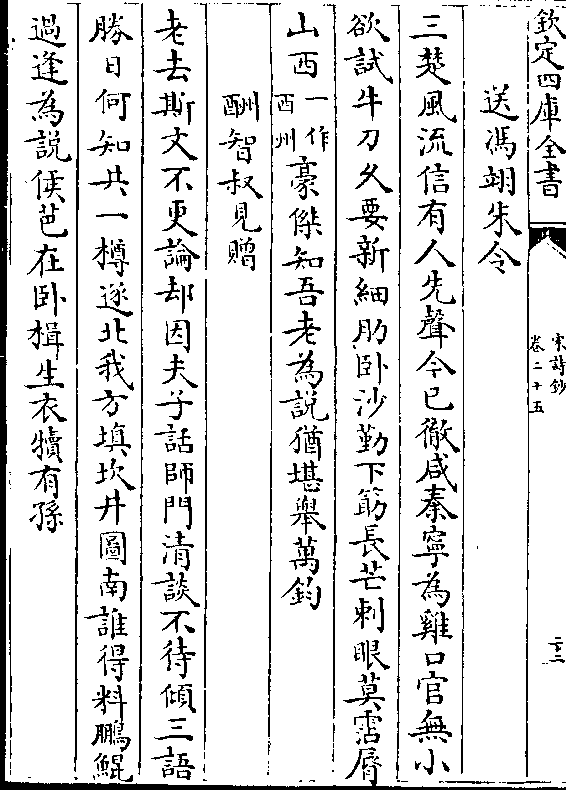 欽定四庫全書
宋詩鈔
卷二十五
二十二
送馮翊朱令
三楚風流信有人先聲今已徹咸秦寧為雞口官無小
欲試牛刀久要新細肋卧沙勤下筯長芒刺眼莫霑脣
山西一作酉州豪傑知吾老為說猶堪舉萬鈞
酬智叔見贈
老去斯文不更論却因夫子話師門清談不待傾三語
勝日何知共一樽逐北我方塡坎井圖南誰得料鵬鯤
過逢為說侯芭在卧楫生衣犢有孫